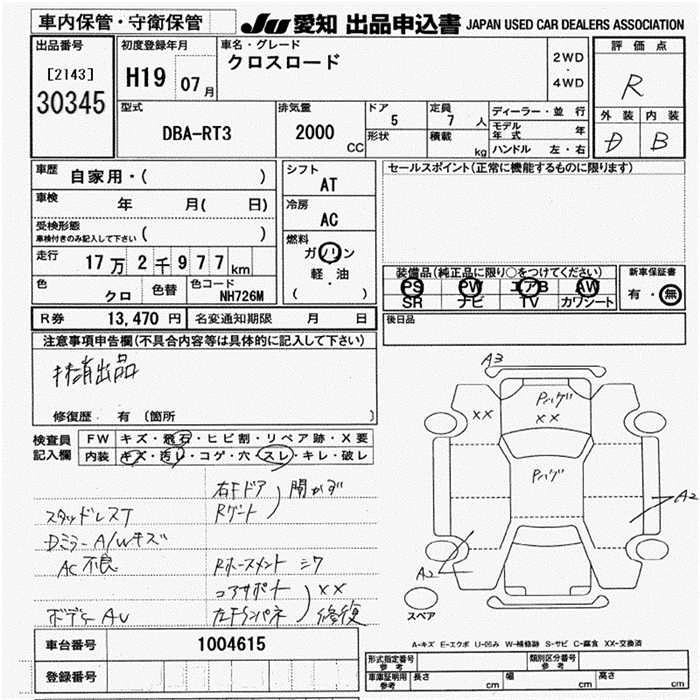 車内保管・守衛保管
JU 愛知 出品申込書 JAPAN USED CAR DEALERS ASSOCIATION
出品番号
[2143]
30345
初度登録年月
H19 07月
車名・グレード
クロスロード
2WD
・
4WD
評価点
R
外装 内装
D B
型式
DBA-RT3
排気量
2000 CC
ドア
5
定員
7 人
形状
積載
kg
ディーラー・並行
モデル年式 年
ハンドル 左・右
車歴 自家用・( )
車検 年 月( 日)
受検形態
車検付きのみ記入して下さい ( )
走行 17万2千977km
色 クロ
色替
色コード NH726M
シフト
AT
冷房
AC
燃料
ガソリン
軽・油
( )
セールスポイント(正常に機能するものに限ります)
装備品(純正品に限り○をつけてください)
PS PW エアB AW
SR ナビ TV カワシート
新車保証書
有・無
R券 13,470 円 名変通知期限 月 日
後日品
注意事項申告欄(不具合内容等は具体的に記入して下さい)
修復歴・有 〔箇所 〕
検査員記入欄
FW キズ・飛石・ヒビ割・リペア跡・X要
内装 キズ・汚レ・コゲ・穴・スレ・キレ・破レ
右Fドア 開かず
スタッドレスT
Dミラー A/Wキズ
AC不良
××
ボデー AU
修復
A3
××
Pハゲ
××
Pハゲ
A2
A2
スペア
車台番号 1004615
登録番号
A-キズ E-エクボ U-凹み W-補修跡 S-サビ C-腐食 XX-交換済
形式指定番号
参考
類別区分番号
参考
車庫証明用
参考
長さ cm 幅 cm 高さ cm